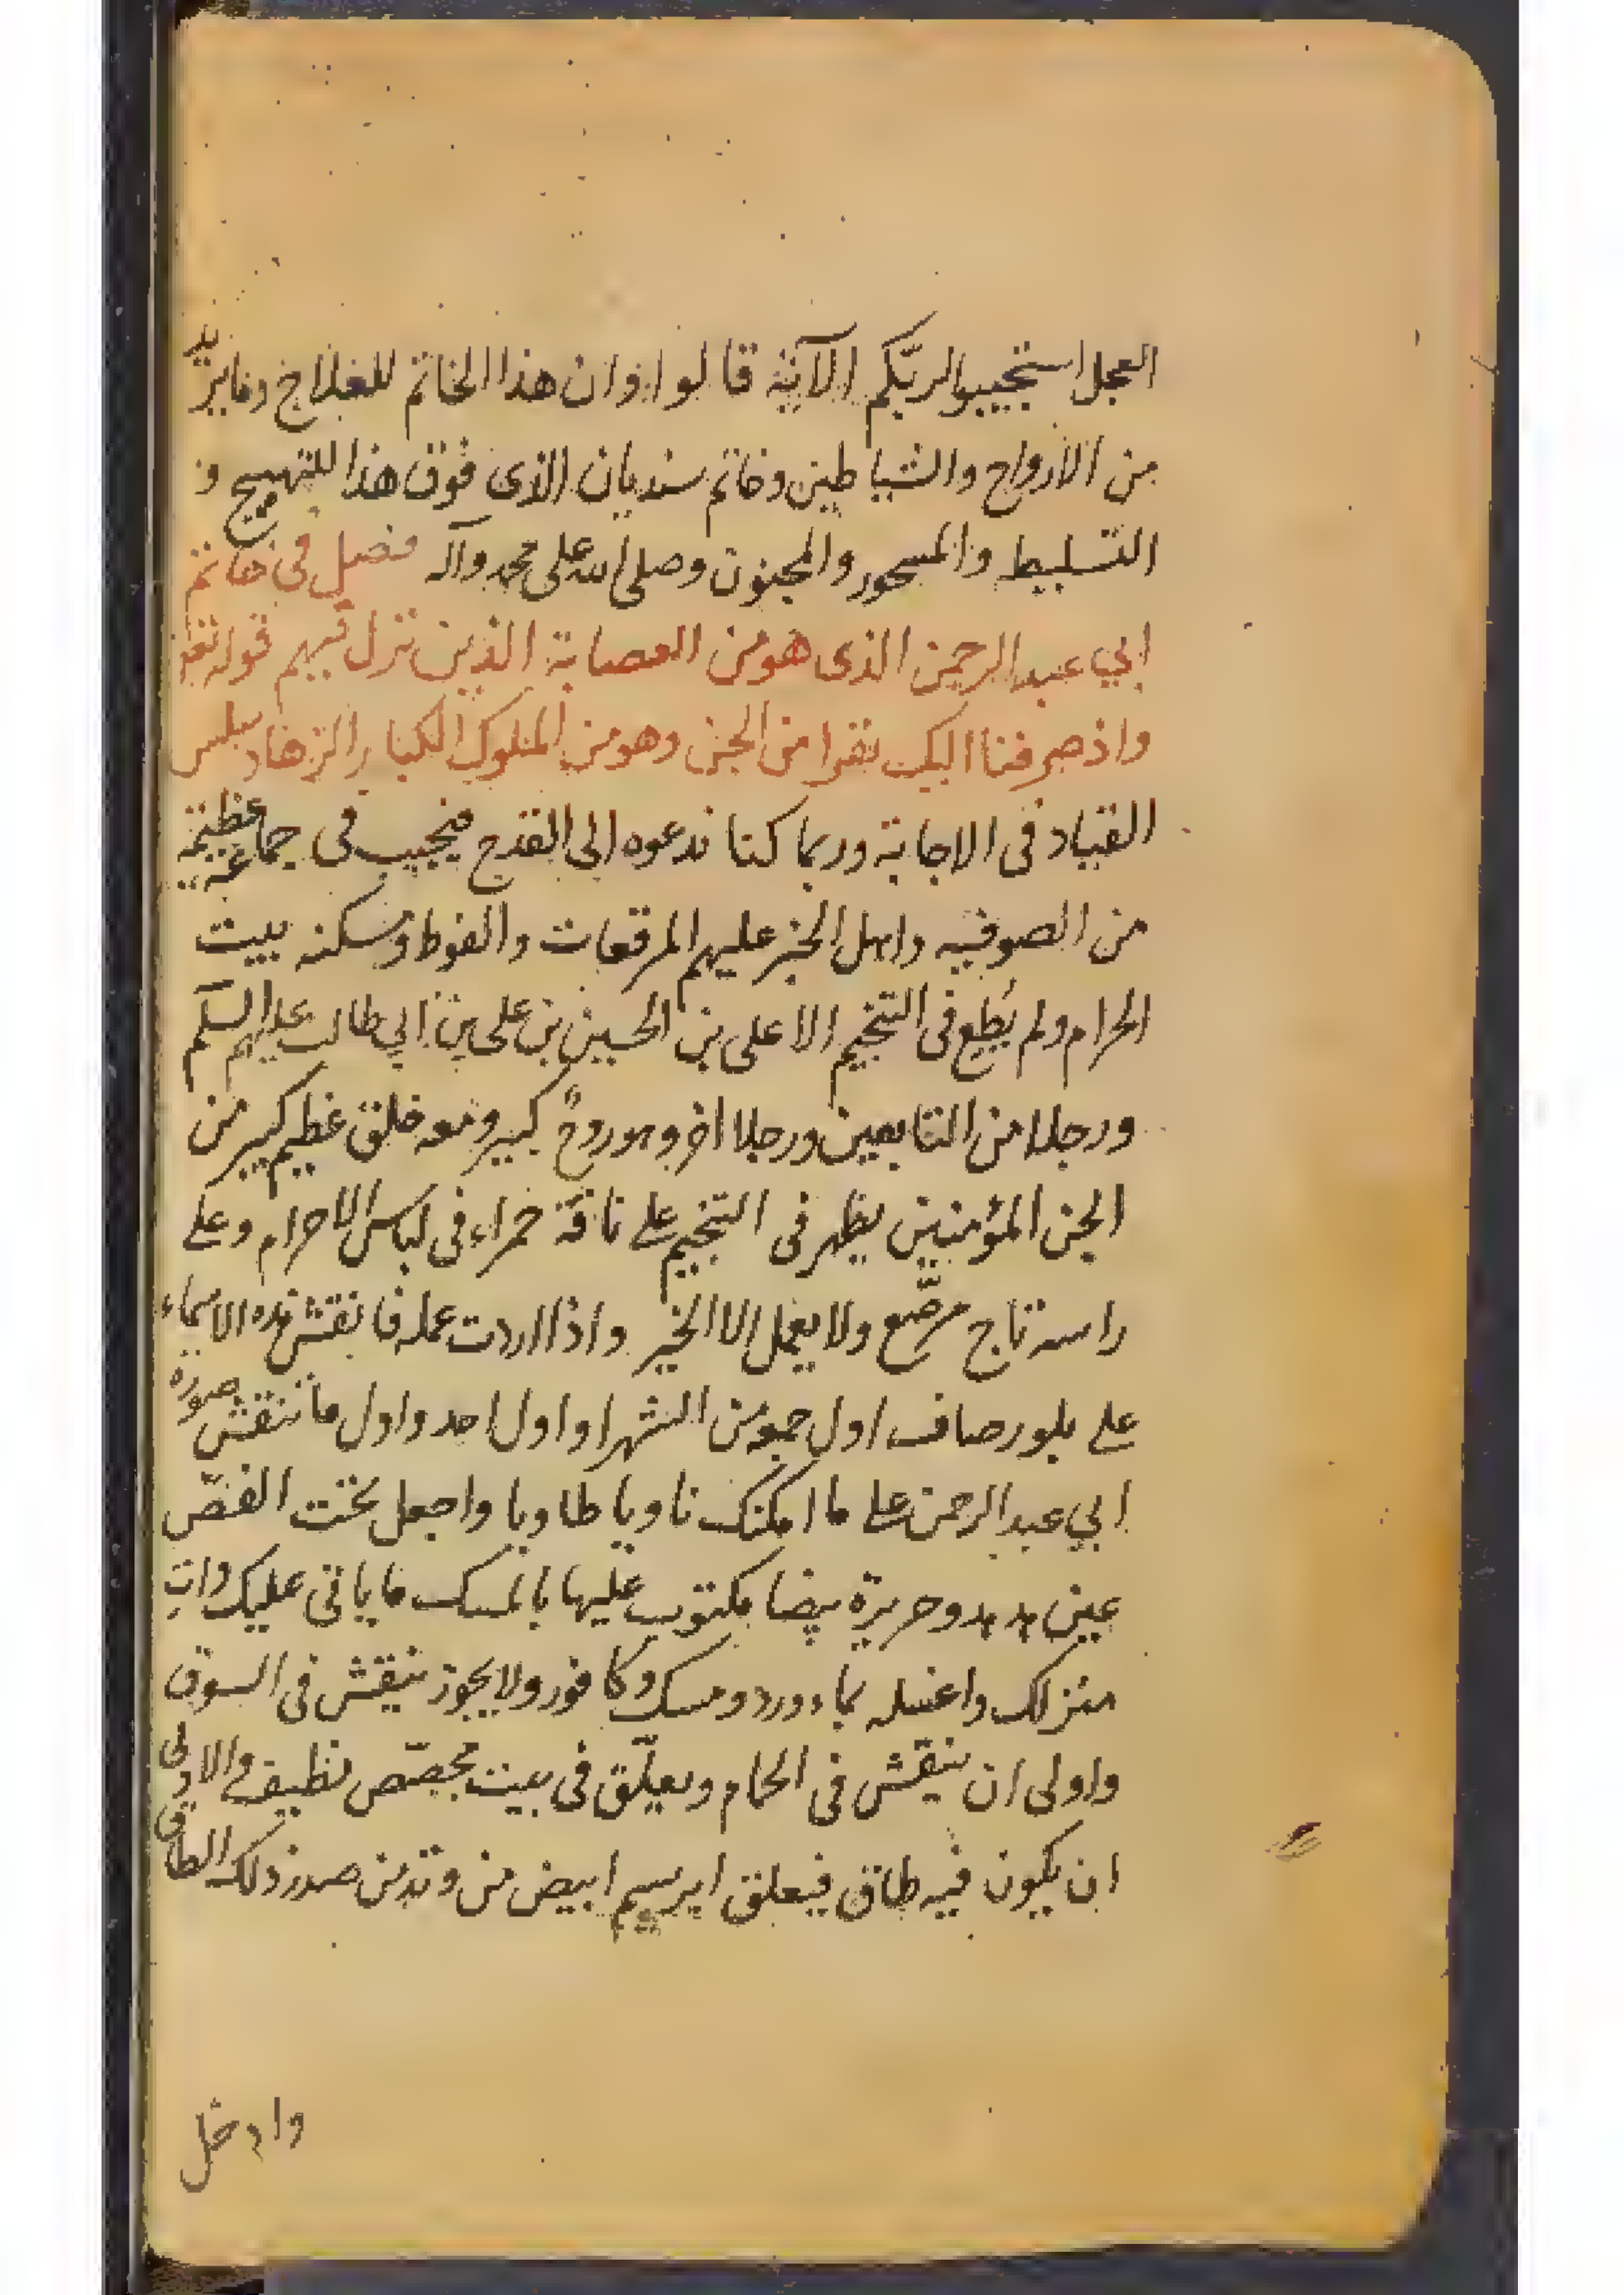 العجل استجيبوا لربكم الآية قالوا وان هذا الخاتم للعلاج وما يريد
من الارواح والشياطين وخاتم سنديان الذى فوق هذا للتهييج و
التسليط والمسحور والمجنون وصلى الله على محمد وآله فصل فى خاتم
ابي عبد الرحمن الذى هو من العصابة الذين نزل فيهم قوله تعا
واذ صرفنا اليك نفرا من الجن وهو من الملوك الكبار الزهاد سلس
القياد فى الاجابة وربما كنا ندعوه الى القدح فيجيب فى جماعة عظيمة
من الصوفيه واهل الخير عليهم المرقعات والفوط ومسكنه بيت
الحرام ولم يطع فى التنجيم الا على بن الحسين بن على بن ابي طالب عليهم السلم
ورجلا من التابعين ورجلا اخر وهو روح كبير ومعه خلق عظيم كبير من
الجن المؤمنين يظهر فى التنجيم على ناقة حمراء فى لباس الاحرام وعلى
راسه تاج مرصّع ولا يعمل الا الخير واذا اردت عمله فانقش هذه الاسماء
على بلور صاف اول جمعة من الشهر او اول احد واول ما تنقش صورة
ابي عبد الرحمن على ما امكنك ناويا طاويا واجعل تحت الفصّ
عين هدهد وحريرة بيضا مكتوب عليها بالمسك ما ياتى عليك وات
منزلك واغسله بماء ورد ومسك وكافور ولا يجوز ينقش فى السوق
واولى ان ينقش فى الحمام ويعلّق فى بيت مجصّص نظيف والاولى
ان يكون فيه طاق فيعلق ابريسم ابيض من وتد من صدر ذلك الطاق
وادخل